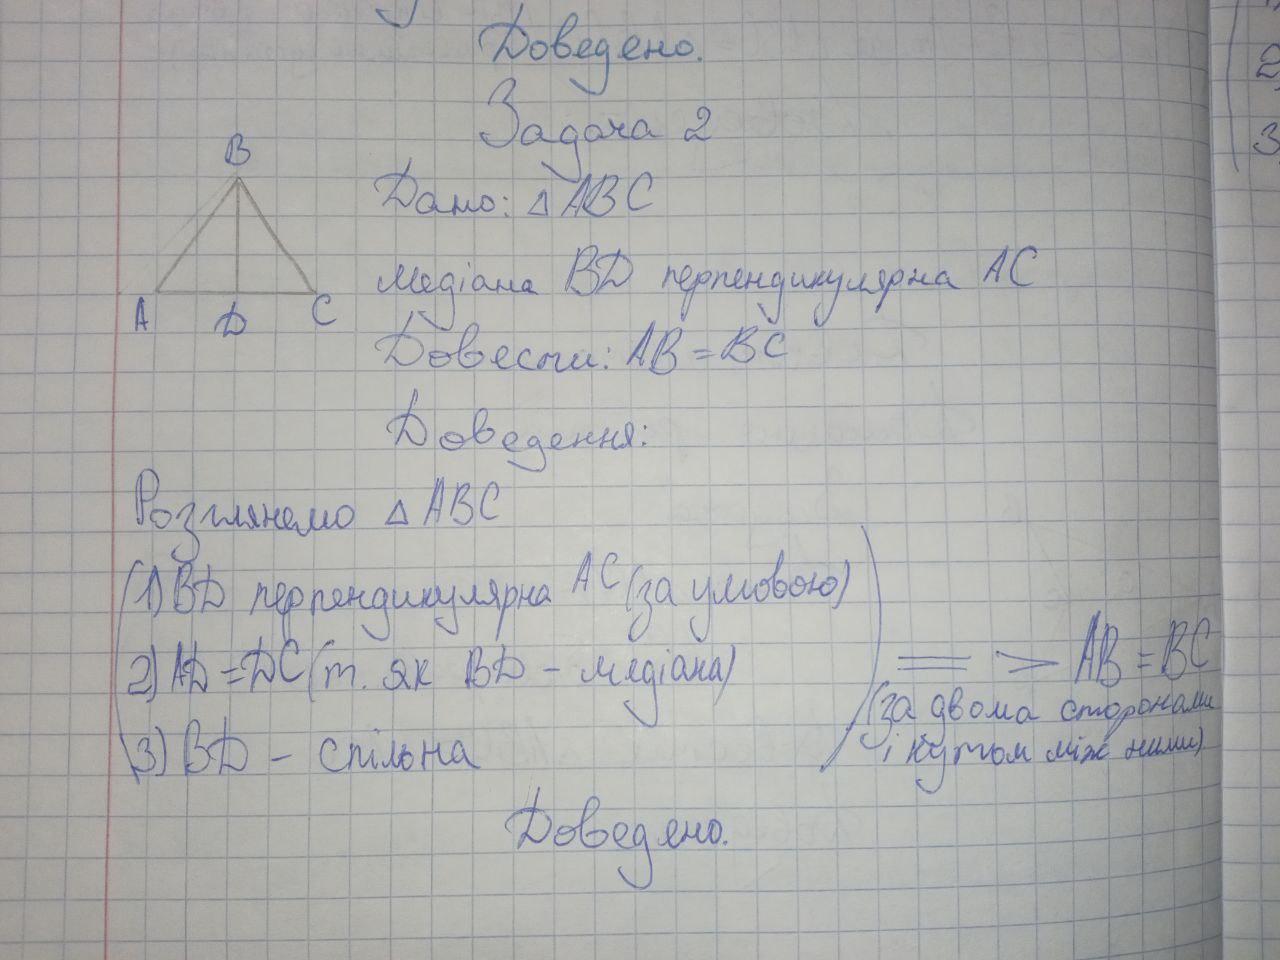 Доведено.
Задача 2
B
A D C
Дано: △ ABC
Медіана BD перпендикулярна AC
Довести: AB = BC
Доведення:
Розглянемо △ ABC
1) BD перпендикулярна AC (за умовою)
2) AD = DC (т. як BD - медіана)
3) BD - спільна
=> AB = BC
(за двома сторонами
і кутом між ними)
Доведено.
2
3